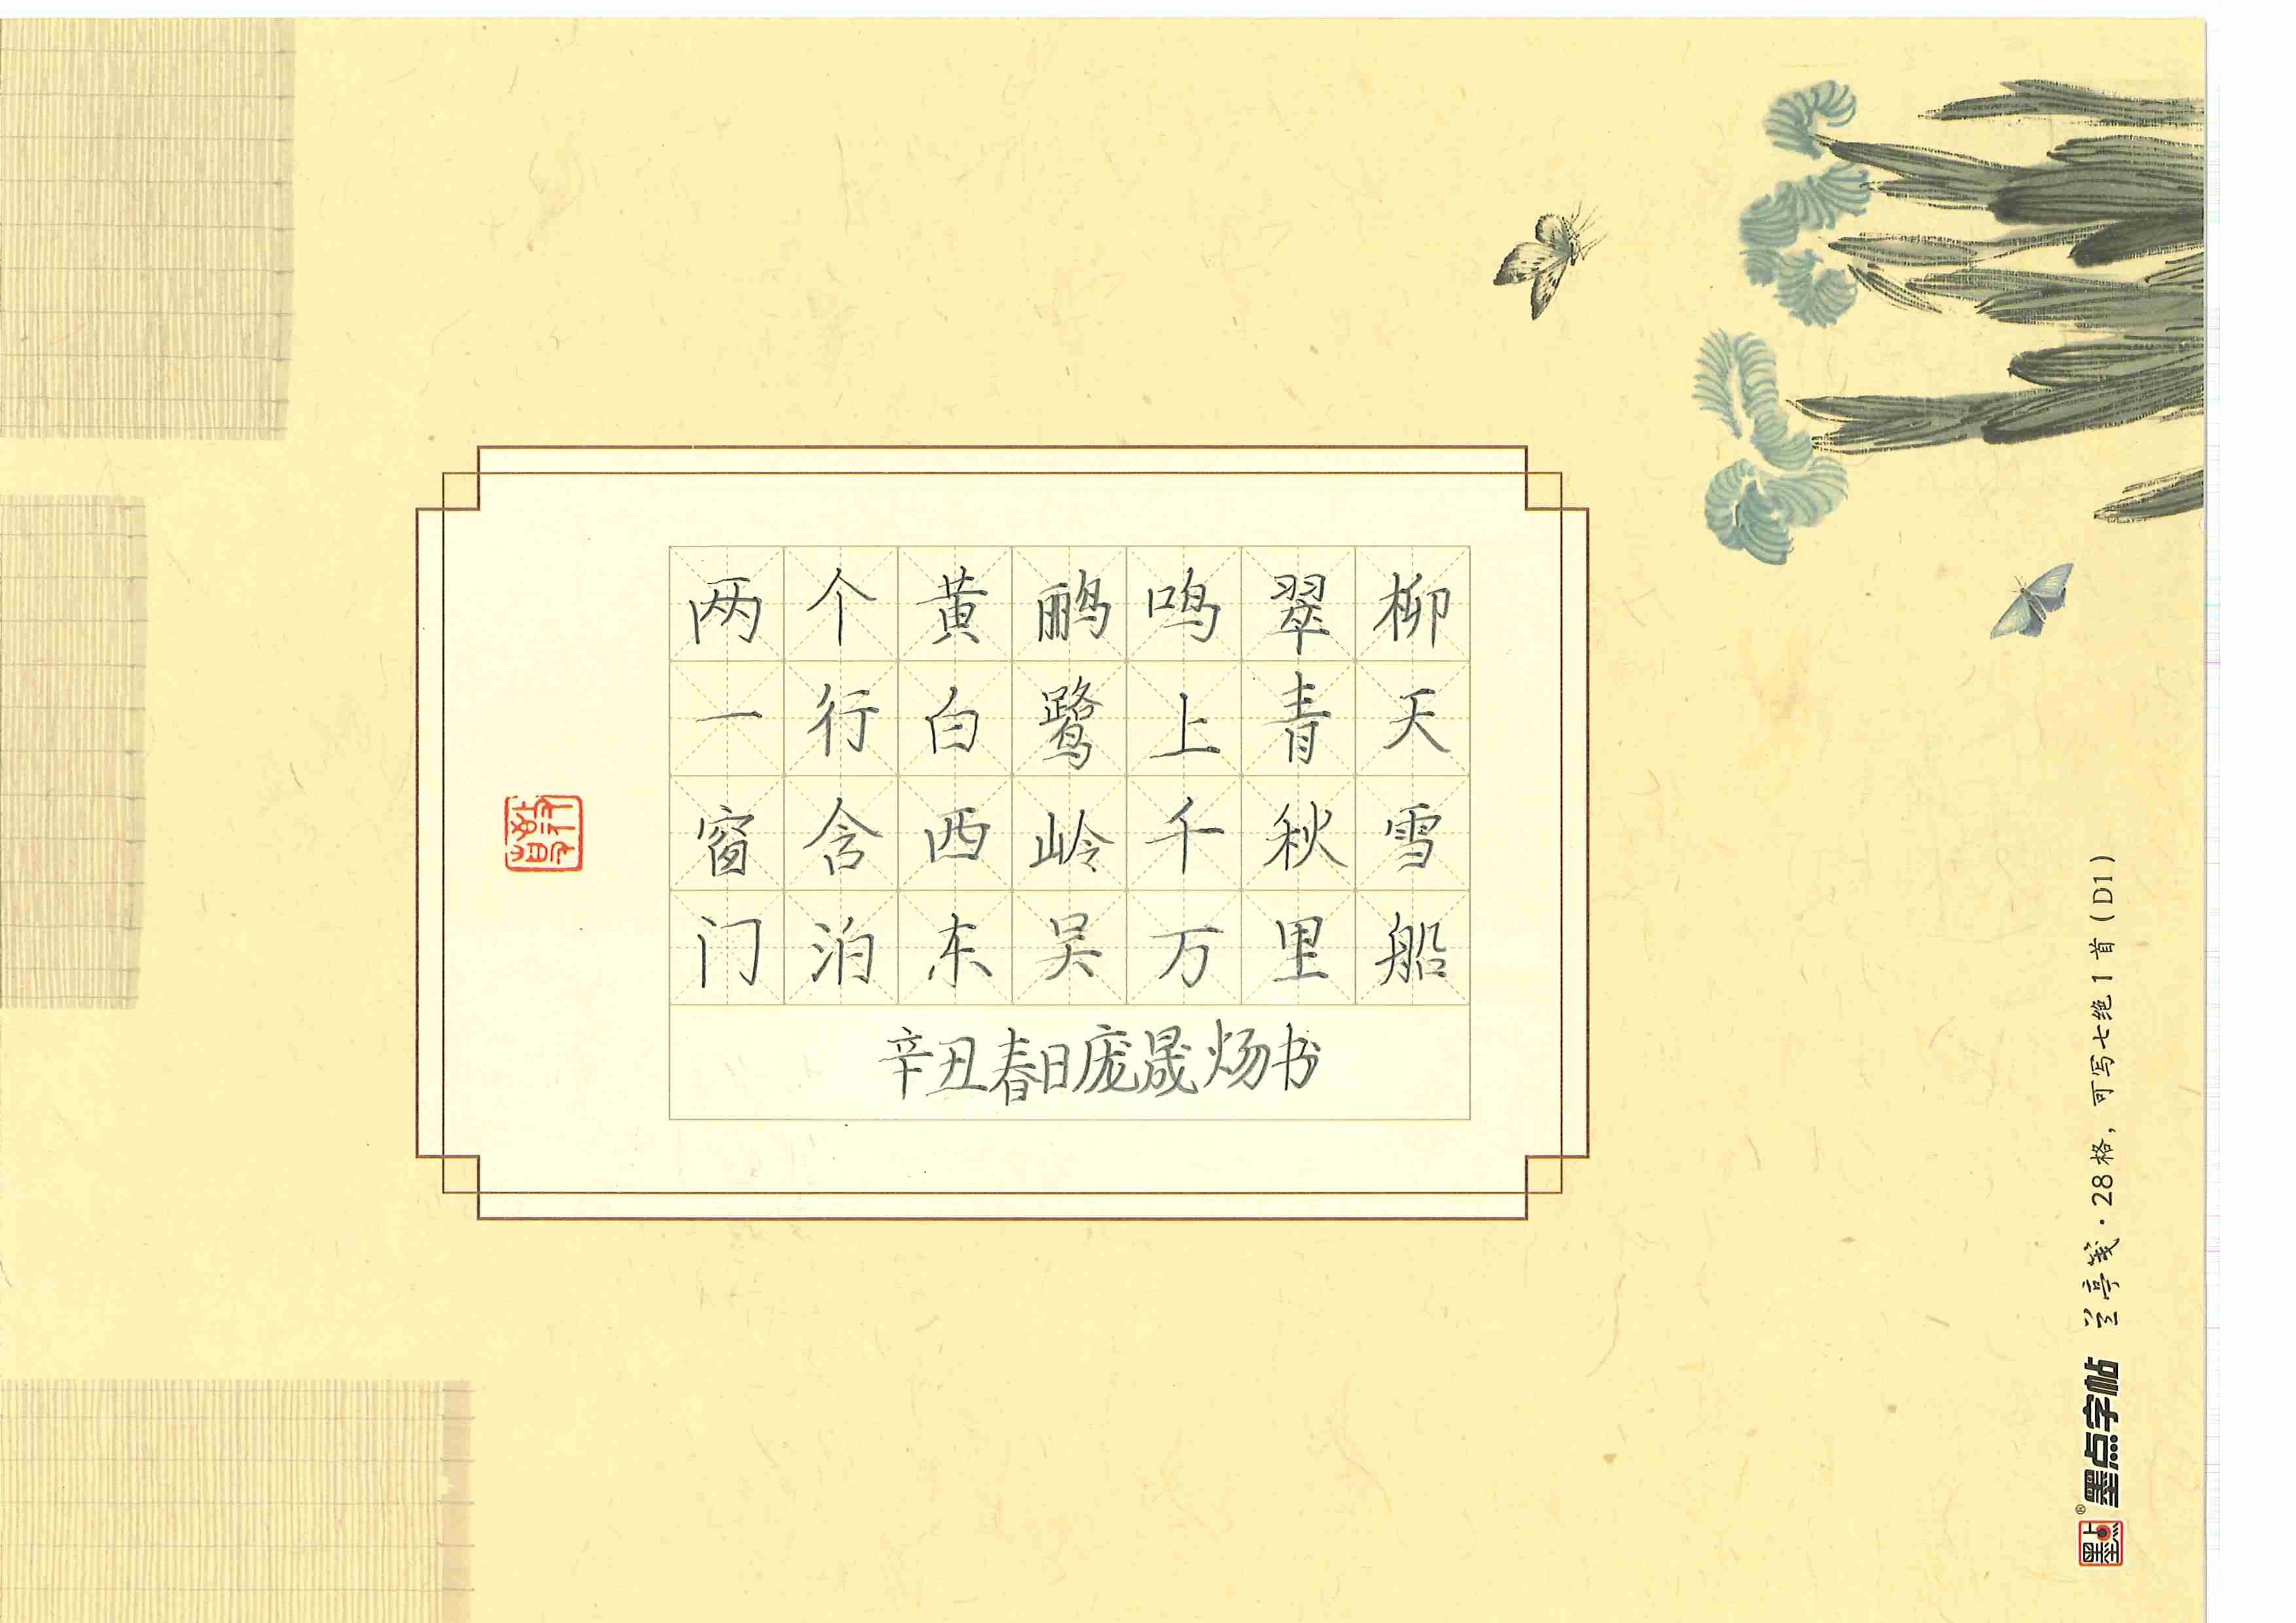 两个黄鹂鸣翠柳
一行白鹭上青天
窗含西岭千秋雪
门泊东吴万里船
辛丑春日庞晟炀书
墨点字帖 兰亭笺·28格，可写七绝1首(D1)